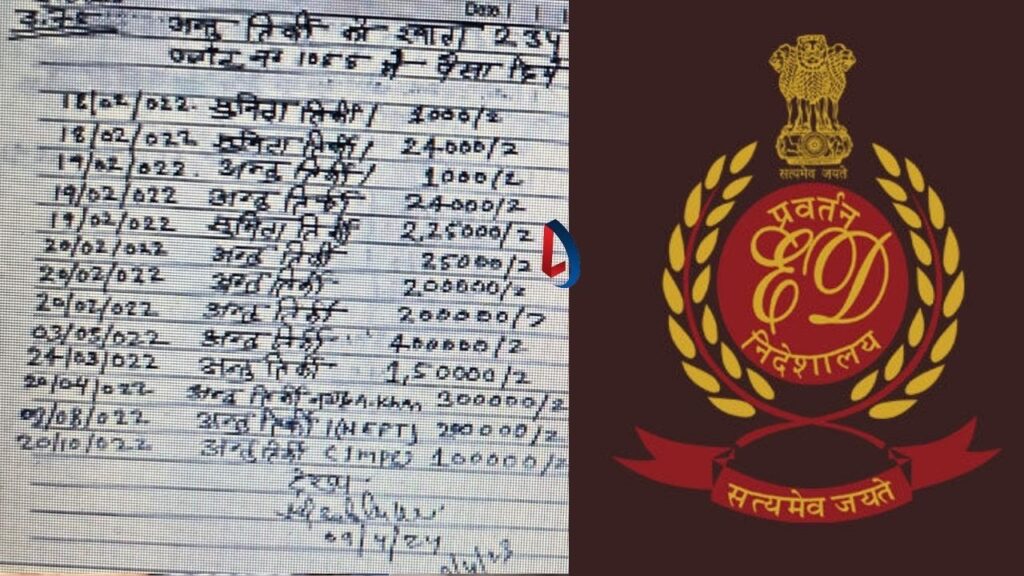 Date
अन्तु तिर्की को खाता 234
प्लौट नं० 1055 में पैसा दिये
18/02/022. सुनिता तिर्की / 1000/2
18/02/022 सुनिता तिर्की / 24000/2
19/02/022. अन्तु तिर्की / 1000/2
19/02/022 अन्तु तिर्की 24000/2
19/02/022 सुनिता तिर्की 2,25000/2
20/02/022 अन्तु तिर्की 25000/2
20/02/022 अन्तु तिर्की 200000/2
20/02/022 अन्तु तिर्की 200000/2
03/03/022 अन्तु तिर्की 400000/2
24/03/022 अन्तु तिर्की 1,50000/2
20/04/022 अन्तु तिर्की A.Khan 300000/2
09/08/022 अन्तु तिर्की (NEFT) 200000/2
20/10/022 अन्तु तिर्की (IMPS) 100000/2
09/4/24
सत्यमेव जयते
प्रवर्तन
ED
निदेशालय
सत्यमेव जयते